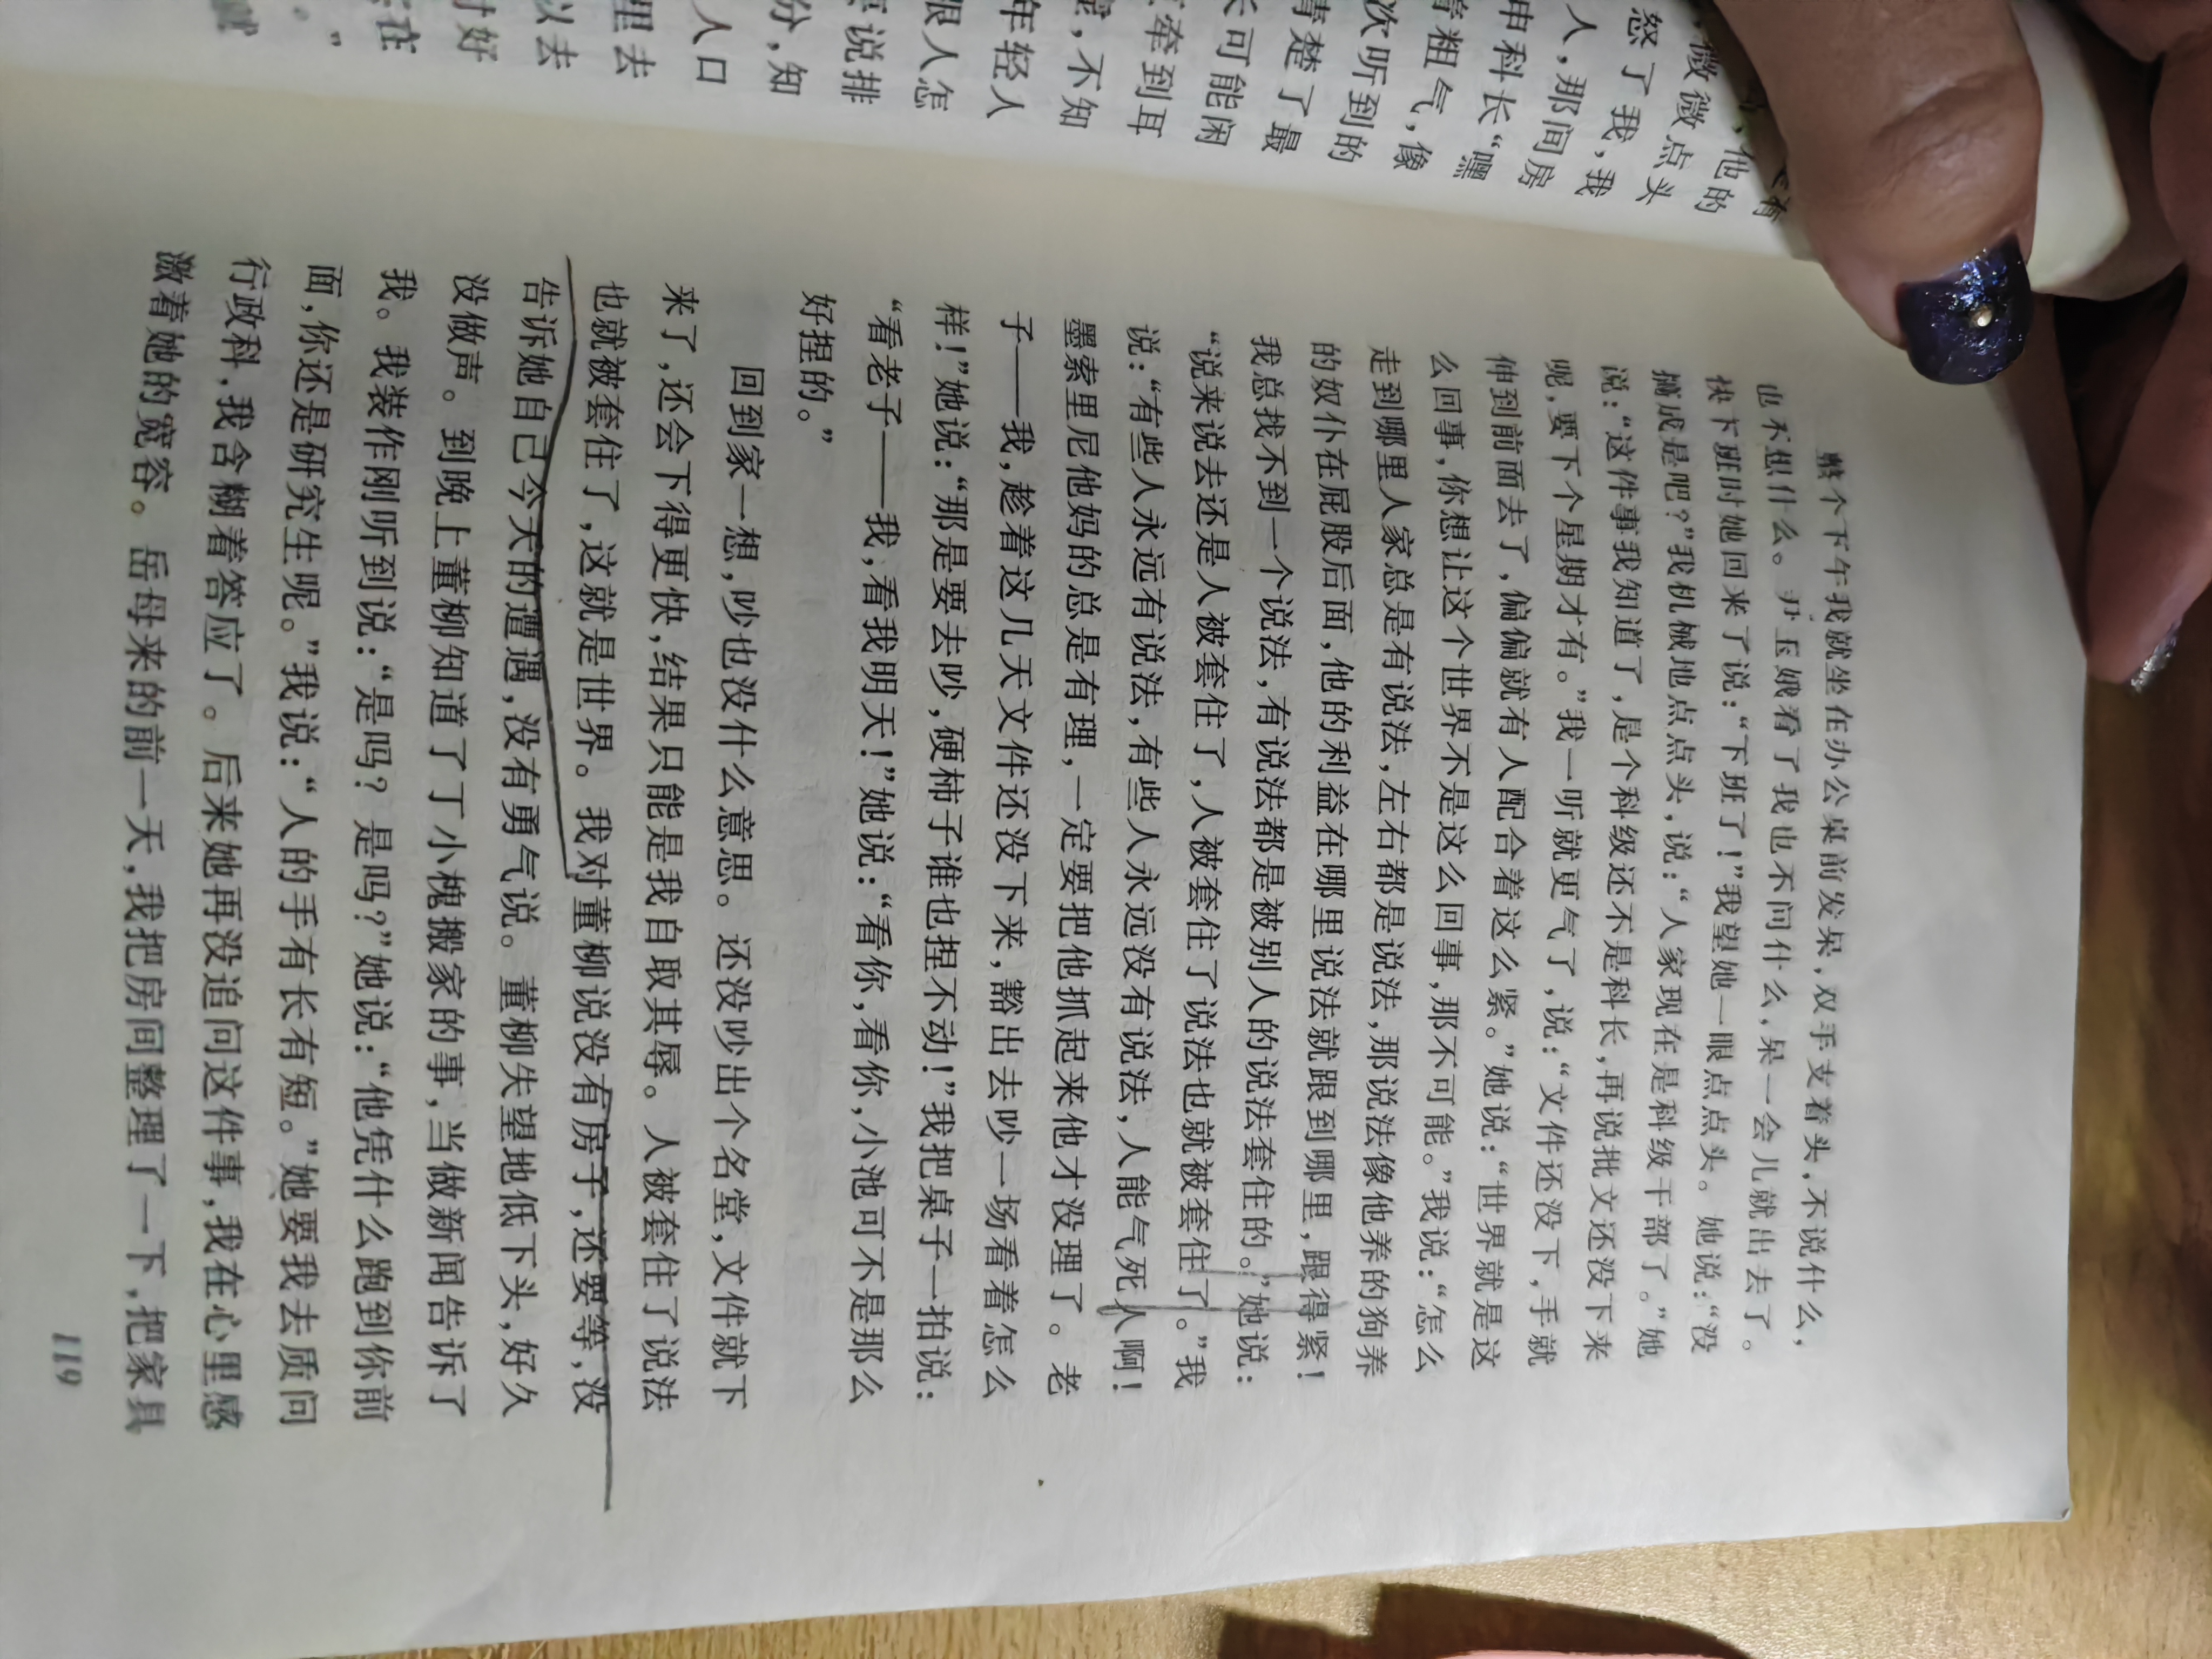 有
、他的
微微点头
怒了我,我
人,那间房
申科长“嘿
着粗气,像
次听到的
青楚了最
长可能闲
牵到耳
,不知
年轻人
限人怎
说排
分,知
人口
里去
以去
对好
在
。”
整个下午我就坐在办公桌前发呆,双手支着头,不说什么,
也不想什么。尹玉娥看了我也不问什么,呆一会儿就出去了。
快下班时她回来了说:“下班了!”我望她一眼点点头。她说:“没
搞成是吧?”我机械地点点头,说:“人家现在是科级干部了。”她
说:“这件事我知道了,是个科级还不是科长,再说批文还没下来
呢,要下个星期才有。”我一听就更气了,说:“文件还没下,手就
伸到前面去了,偏偏就有人配合着这么紧。”她说:“世界就是这
么回事,你想让这个世界不是这么回事,那不可能。”我说:“怎么
走到哪里人家总是有说法,左右都是说法,那说法像他养的狗养
的奴仆在屁股后面,他的利益在哪里说法就跟到哪里,跟得紧!
我总找不到一个说法,有说法都是被别人的说法套住的。”她说:
“说来说去还是人被套住了,人被套住了说法也就被套住了。”我
说:“有些人永远有说法,有些人永远没有说法,人能气死人啊!
墨索里尼他妈的总是有理,一定要把他抓起来他才没理了。老
子——我,趁着这几天文件还没下来,豁出去吵一场看着怎么
样!”她说:“那是要去吵,硬柿子谁也捏不动!”我把桌子一拍说:
“看老子——我,看我明天!”她说:“看你,看你,小池可不是那么
好捏的。”
回到家一想,吵也没什么意思。还没吵出个名堂,文件就下
来了,还会下得更快,结果只能是我自取其辱。人被套住了说法
也就被套住了,这就是世界。我对董柳说没有房子,还要等,没
告诉她自己今天的遭遇,没有勇气说。董柳失望地低下头,好久
没做声。到晚上董柳知道了丁小槐搬家的事,当做新闻告诉了
我。我装作刚听到说:“是吗?是吗?”她说:“他凭什么跑到你前
面,你还是研究生呢。”我说:“人的手有长有短。”她要我去质问
行政科,我含糊着答应了。后来她再没追问这件事,我在心里感
激着她的宽容。岳母来的前一天,我把房间整理了一下,把家具
119